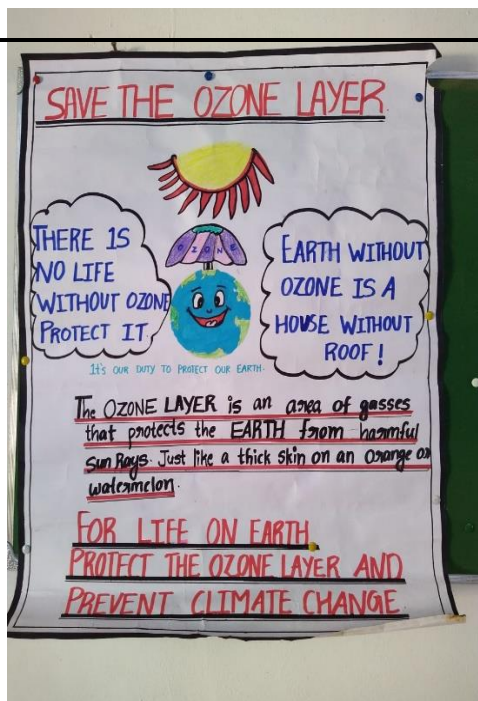 SAVE THE OZONE LAYER
THERE IS
NO LIFE
WITHOUT OZONE
PROTECT IT
OZONE
EARTH WITHOUT
OZONE IS A
HOUSE WITHOUT
ROOF!
It's OUR DUTY TO PROTECT OUR EARTH.
The OZONE LAYER is an area of gasses
that protects the EARTH from harmful
Sun Rays. Just like a thick skin on an Orange or
watermelon.
FOR LIFE ON EARTH
PROTECT THE OZONE LAYER AND
PREVENT CLIMATE CHANGE